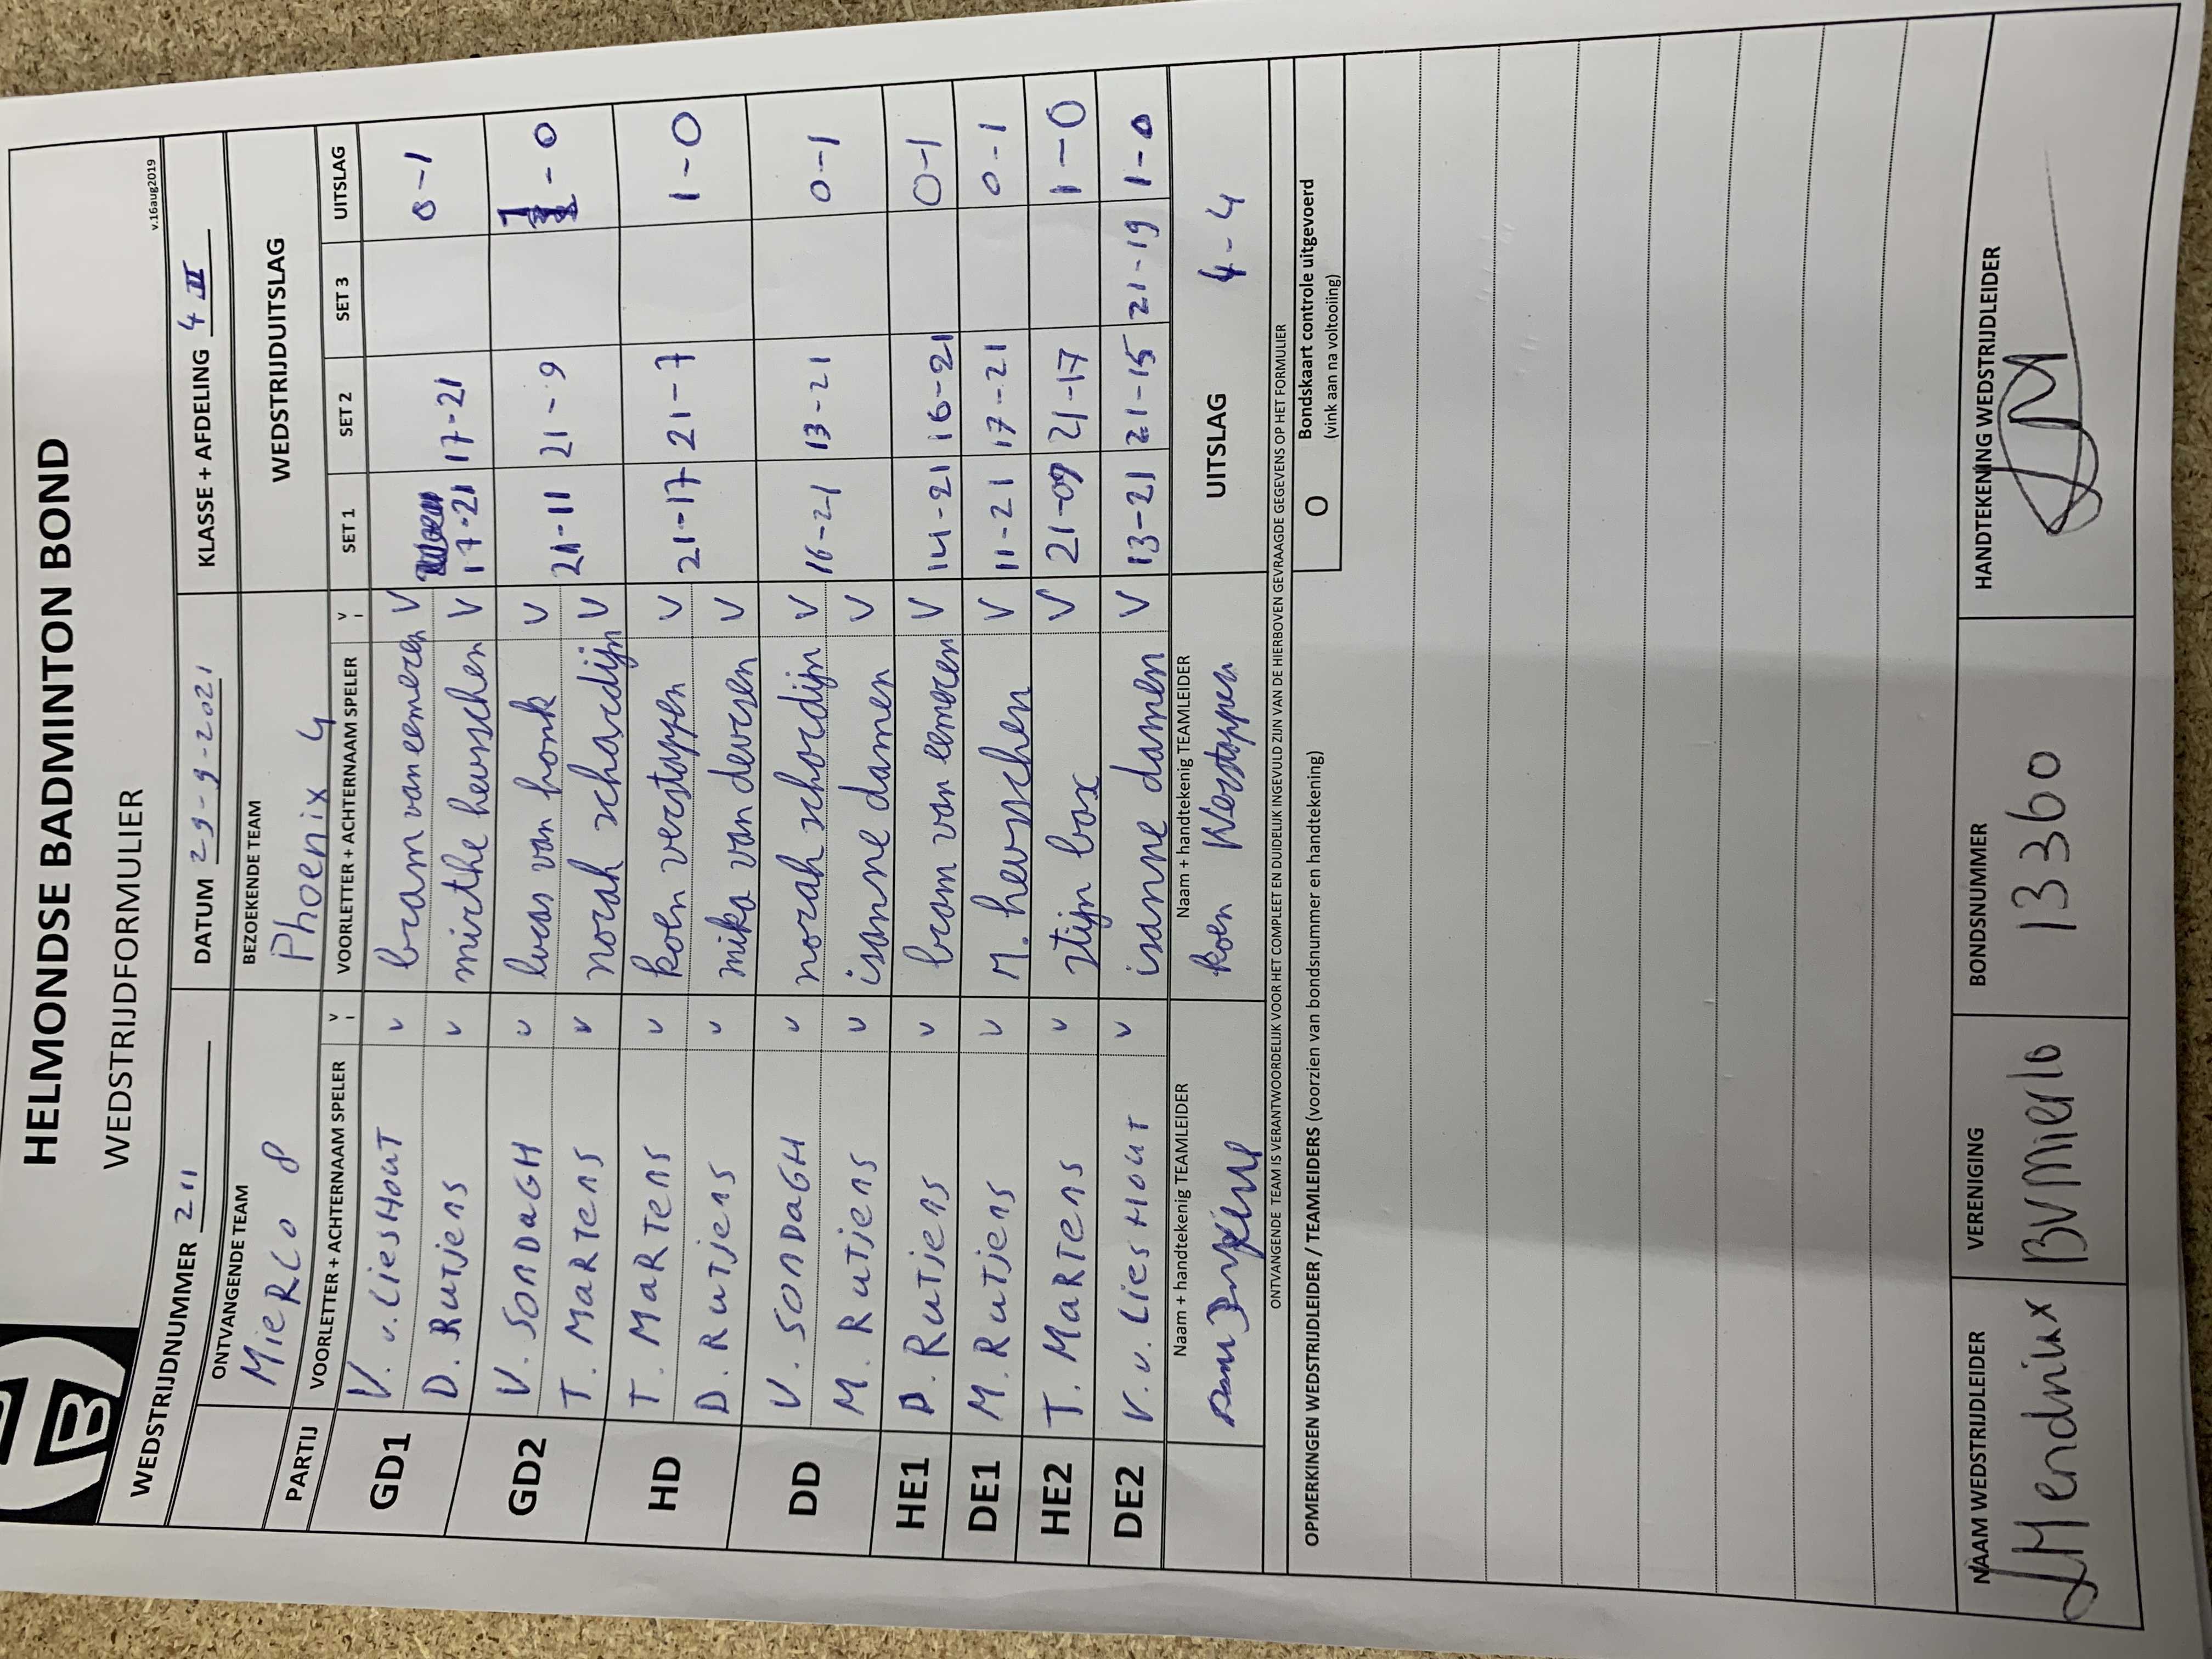 B
HELMONDSE BADMINTON BOND
WEDSTRIJDFORMULIER
v.16aug2019
WEDSTRIJDNUMMER 211 DATUM 29-9-2021 KLASSE + AFDELING 4 II
ONTVANGENDE TEAM BEZOEKENDE TEAM WEDSTRIJDUITSLAG
MieRLo 8 Phoenix 4
PARTIJ VOORLETTER + ACHTERNAAM SPELER V VOORLETTER + ACHTERNAAM SPELER V SET 1 SET 2 SET 3 UITSLAG
GD1 V. v. LiesHouT v bram van eemeren V 17-21 17-21 0-1
D. RuTjens v mirthe heurschen V
GD2 V. SONDaGH v lucas van honk V 21-11 21-9 1-0
T. MaRTens v norah schordijn V
HD T. MaRTens v koen verstappen V 21-17 21-7 1-0
D. RuTjens v mika van deursen V
DD V. SONDaGH v norah schordijn V 16-21 13-21 0-1
M. RuTjens v isanne damen V
HE1 D. RuTjens v bram van eemeren V 14-21 16-21 0-1
DE1 M. RuTjens v M. heurschen V 11-21 17-21 0-1
HE2 T. MaRTens v stijn box V 21-09 21-17 1-0
DE2 V. v. LiesHouT v isanne damen V 13-21 21-15 21-19 1-0
Naam + handtekenig TEAMLEIDER Naam + handtekenig TEAMLEIDER UITSLAG 4-4
koen Verstappen
ONTVANGENDE TEAM IS VERANTWOORDELIJK VOOR HET COMPLEET EN DUIDELIJK INGEVULD ZIJN VAN DE HIERBOVEN GEVRAAGDE GEGEVENS OP HET FORMULIER
OPMERKINGEN WEDSTRIJDLEIDER / TEAMLEIDERS (voorzien van bondsnummer en handtekening) O Bondskaart controle uitgevoerd
(vink aan na voltooiing)
NAAM WEDSTRIJDLEIDER VERENIGING BONDSNUMMER HANDTEKENING WEDSTRIJDLEIDER
BV Mierlo 13360